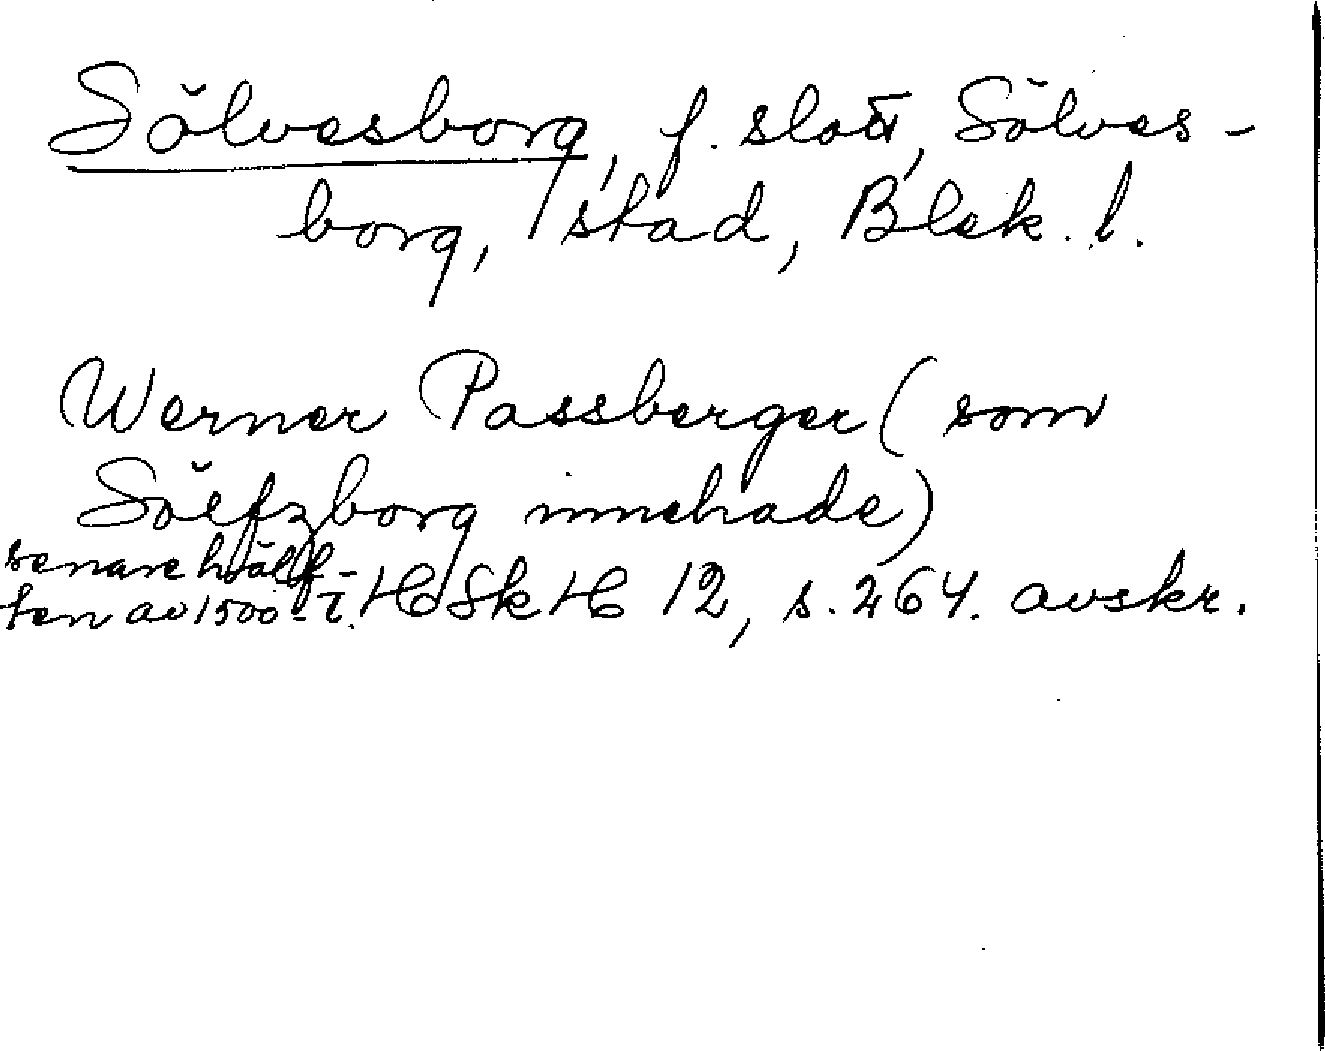 Sölvesborg, f. slott, Sölves-
borg, stad, Blek. l.
Werner Passberger (som
Sölfzborg innehade)
senare hälf-
ten av 1500-t. HSkH 12, s. 264. avskr.